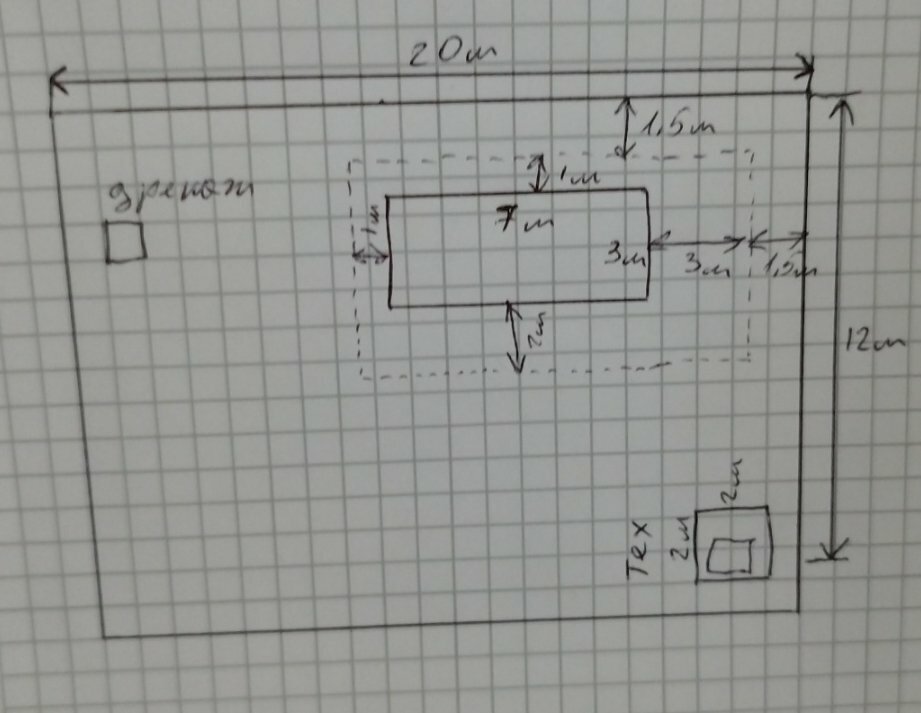 20м
1,5м
дренаж
1м
1м
7м
3м
3м
1,5м
2м
12м
2м
Тех
2м